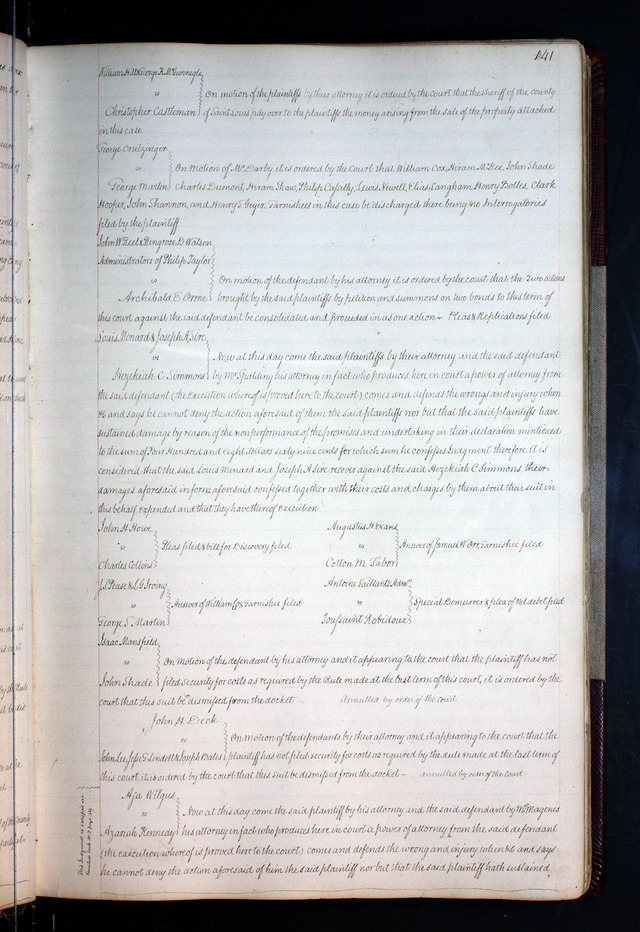 441
William Hill & George K. McGunnegle
vs
Christopher Castleman
On motion of the plaintiffs by their attorney it is ordered by the court that the Sheriff of the county
of Saint Louis pay over to the plaintiffs the money arising from the sale of the property attached
in this case
George Crutzinger
vs
George Martin
On motion of Mr. Darby it is ordered by the Court that William Cox, Hiram M. John Shade
Charles Dumont, Hiram Shaw, Philip Lewis Newell, Elias Langham, Henry Bolles, Clark
Hooper, John Shannon, and Henry S. Geyer, Garnishees in this case be discharged there being no Interrogatories
filed by the plaintiff
John W Reel & Ringrose D. Watson
Administrators of Philip Taylor
vs
Archibald E. Orme
On motion of the defendant by his attorney it is ordered by the court that the Two actions
brought by the said plaintiffs by petition and summons on two bonds to this term of
this court against the said defendant be consolidated and proceeded in as one action – Pleas & Replications filed
Louis Menard & Joseph A. Sire
vs
Hezekiah C. Simmons
Now at this day come the said plaintiffs by their attorney and the said defendant
by Mr. Spalding his attorney in fact who produces here in court a power of attorney from
the said defendant (the execution whereof is proved here to the court) comes and defends the wrongs and injury when
&c and says he cannot deny the action aforesaid of them the said plaintiffs nor but that the said plaintiffs have
sustained damage by reason of the nonperformance of the promises and undertaking in their declaration mentioned
to the sum of Four Hundred and eight dollars sixty nine cents for which sum he confesses Judgment therefore it is
considered that the said Louis Menard and Joseph A Sire recover against the said Hezekiah C Simmons their
damages aforesaid in form aforesaid confessed together with their costs and charges by them about their suit in
this behalf expended and that they have thereof execution
John H. Howe
vs
Charles Collins
Pleas filed & bill for Discovery filed
Augustus H. Evans
vs
Cotton M. Tabor
Answer of Samuel W. Orr, Garnishee filed
J. S. Pease & L. G. Irving
vs
George S. Martin
Answer of William Cox, Garnishee filed
Antoine Vaillant's Admr.
vs
Toussaint Robidoux
Special Demurrer & plea of Nil debet filed
Isaac Mansfield
vs
John Shade
On motion of the defendant by his attorney and it appearing to the court that the plaintiff has not
filed security for costs as required by the Rule made at the last term of this court, it is ordered by the
court that this suit be dismissed from the docket – Annulled by order of the court
John H. Deck
vs
John Lee, Jesse G. Lindell & Joseph Bates
On motion of the defendants by their attorney and it appearing to the court that the
plaintiff has not filed security for costs as required by the Rule made at the last term of
this court it is ordered by the court that this suit be dismissed from the docket – annulled by order of the court
Asa Wilgus
vs
Azariah Kennedy
Now at this day come the said plaintiff by his attorney and the said defendant by Mr. Magenis
his attorney in fact who produces here in court a power of attorney from the said defendant
(the execution whereof is proved here to the court) comes and defends the wrong and injury when &c and says
he cannot deny the action aforesaid of him the said plaintiff nor but that the said plaintiff hath sustained